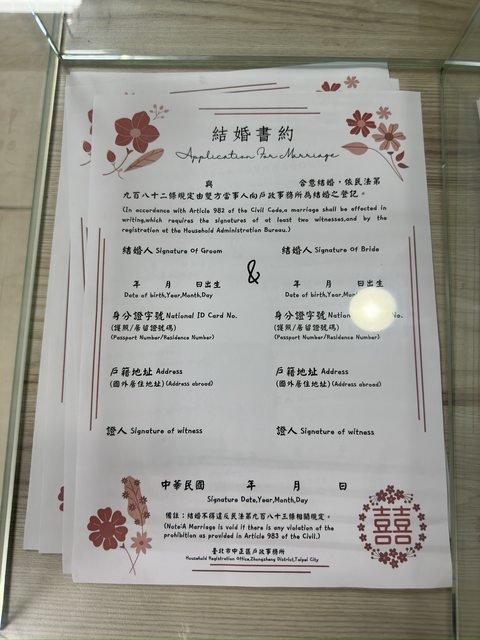 結婚書約
Application For Marriage
與 合意結婚，依民法第
九百八十二條規定由雙方當事人向戶政事務所為結婚之登記。
(In accordance with Article 982 of the Civil Code,a marriage shall be effected in
writing,which requires the signatures of at least two witnesses,and by the
registration at the Household Administration Bureau.)
結婚人 Signature Of Groom 結婚人 Signature Of Bride
&
年 月 日出生 年 月 日出生
Date of birth,Year,Month,Day Date of birth,Year,
身分證字號 National ID Card No. 身分證字號 No.
(護照/居留證號碼) (護照/居留證號碼)
(Passport Number/Residence Number) (Passport Number/Residence Number)
戶籍地址 Address 戶籍地址 Address
(國外居住地址) (Address abroad) (國外居住地址) (Address abroad)
證人 Signature of witness 證人 Signature of witness
中華民國 年 月 日
Signature Date,Year,Month,Day
備註：結婚不得違反民法第九百八十三條相關規定。
(Note:A Marriage is void if there is any violation of the
prohibition as provided in Article 983 of the Civil.)
臺北市中正區戶政事務所
Household Registration Office,Zhongzheng District,Taipei City
囍